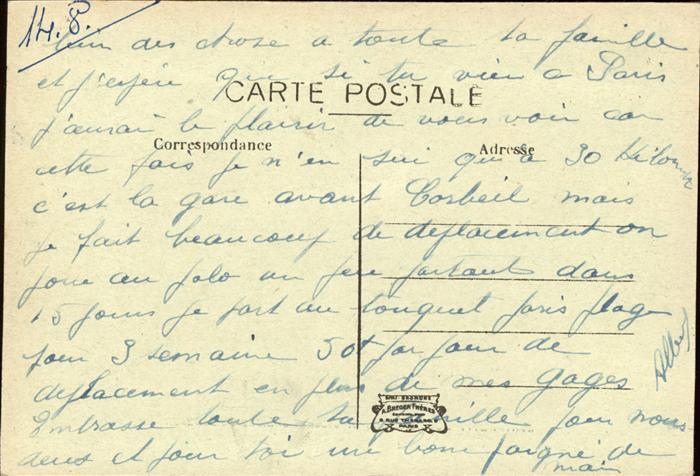 14.8.
bien des chose a toute ta famille
et j'espère que si tu vien a Paris
CARTE POSTALE
j'aurai le plaisir de vous voir car
Correspondance
Adresse
cette fois je n'en sui qu'a 30 Kilom
c'est la gare avant Corbeil mais
je fait beaucoup de deplacement on
joue au polo un peu partout dans
15 jours je part au Touquet Paris plage
pour 3 semaine 50f par jour de
deplacement en plus de mes gages
Embrasse toute ta famille pour nous
deux et pour toi une bonne poigné de
main
Albert
A. BREGER FRÈRES
PARIS